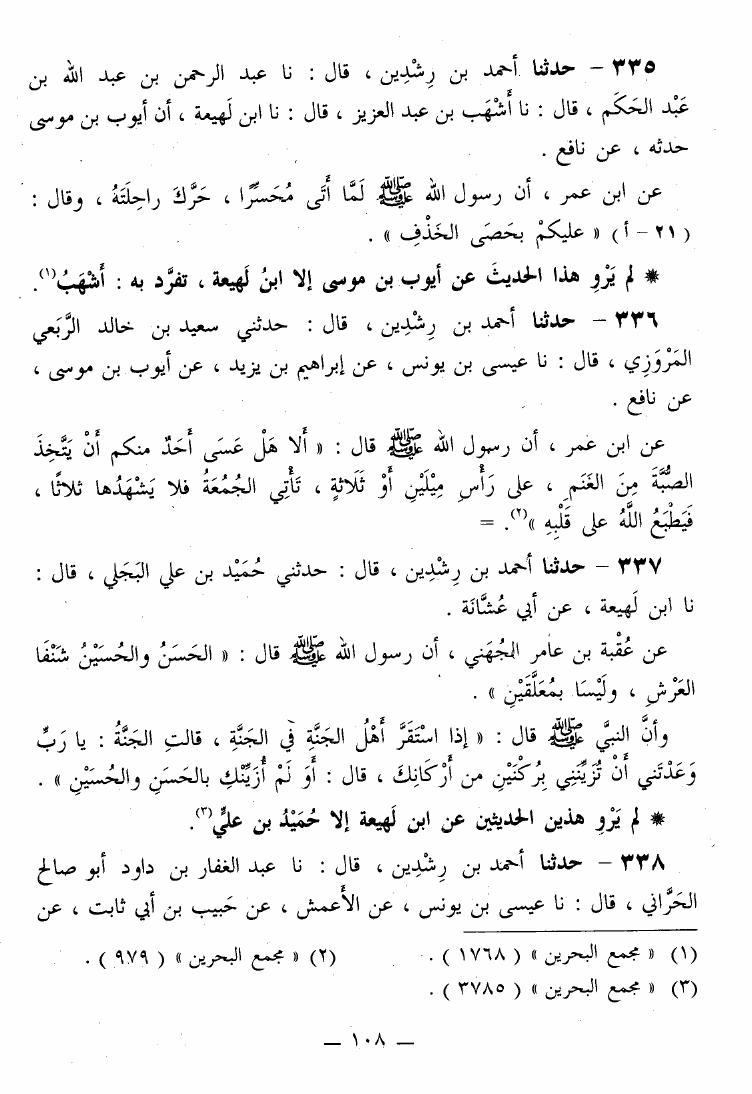 ٣٣٥ – حدثنا أحمد بن رِشْدِين ، قال : نا عبد الرحمن بن عبد الله بن
عَبْد الحَكَم ، قال : نا أَشْهَب بن عبد العزيز ، قال : نا ابن لَهيعة ، أن أيوب بن موسى
حدثه ، عن نافع .
عن ابن عمر ، أن رسول الله ﷺ لَمَّا أَتَى مُحَسِّرًا ، حَرَّكَ راحِلَتَهُ ، وقال :
( ٢١ – أ ) « عليكمْ بحَصَى الخَذْفِ » .
* لم يَرْوِ هذا الحديثَ عن أيوب بن موسى إلا ابنُ لَهيعة ، تفرَّد به : أَشْهَبُ(١).
٣٣٦ – حدثنا أحمد بن رِشْدِين ، قال : حدثني سعيد بن خالد الرَّبَعي
المَرْوَزِي ، قال : نا عيسى بن يونس ، عن إبراهيم بن يزيد ، عن أيوب بن موسى ،
عن نافع .
عن ابن عمر ، أن رسول الله ﷺ قال : « أَلا هَلْ عَسَى أَحَدٌ منكم أَنْ يَتَّخِذَ
الصُّبَّةَ مِنَ الغَنَمِ ، على رَأْسِ مِيْلَيْنِ أَوْ ثَلَاثةٍ ، تَأْتِي الجُمُعَةُ فلا يَشْهَدُها ثلاثًا ،
فَيَطْبَعُ اللَّهُ على قَلْبِهِ »(٢). =
٣٣٧ – حدثنا أحمد بن رِشْدِين ، قال : حدثني حُمَيْد بن علي البَجَلي ، قال :
نا ابن لَهيعة ، عن أبي عُشَّانَة .
عن عُقْبة بن عامر الجُهَني ، أن رسول الله ﷺ قال : « الحَسَنُ والحُسَيْنُ شَنْفَا
العَرْشِ ، ولَيْسَا بمُعَلَّقَيْنِ » .
وأنَّ النبيَّ ﷺ قال : « إذا اسْتَقَرَّ أَهْلُ الجَنَّةِ في الجَنَّةِ ، قالتِ الجَنَّةُ : يا رَبِّ
وَعَدْتَني أَنْ تُزَيِّنَنِي بِرُكْنَيْنِ من أَرْكَانِكَ ، قال : أَوَ لَمْ أُزَيِّنْكِ بالحَسَنِ والحُسَيْنِ » .
* لم يَرْوِ هذين الحديثين عن ابن لَهيعة إلا حُمَيْدُ بن عليٍّ(٣).
٣٣٨ – حدثنا أحمد بن رِشْدِين ، قال : نا عبد الغفار بن داود أبو صالح
الحَرَّاني ، قال : نا عيسى بن يونس ، عن الأَعمش ، عن حَبيب بن أبي ثابت ، عن
(١) « مجمع البحرين » ( ١٧٦٨ ) . (٢) « مجمع البحرين » ( ٩٧٩ ) .
(٣) « مجمع البحرين » ( ٣٧٨٥ ) .
– ١٠٨ –